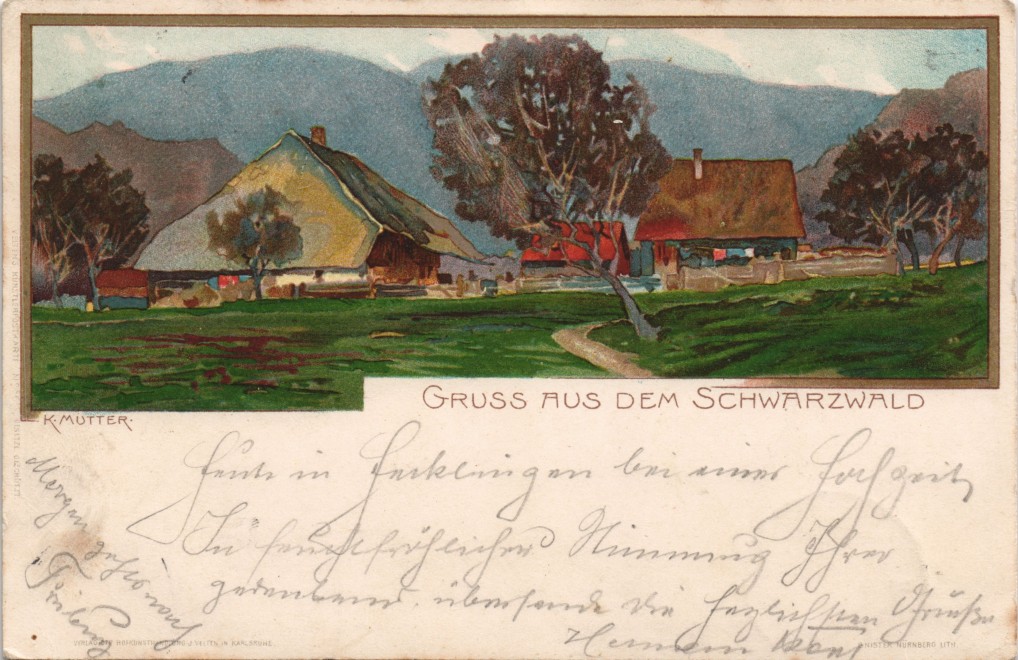 K. MUTTER.
GRUSS AUS DEM SCHWARZWALD
Heute in Hecklingen bei einer Hochzeit
In feuchtfröhlicher Stimmung Ihrer
gedenkend, übersende die herzlichsten Grüße
Hermann
Morgen geht's nach
Freiburg
VERLAG DER HOFKUNSTHANDLUNG J. VELTEN IN KARLSRUHE.
NISTER NÜRNBERG LITH.